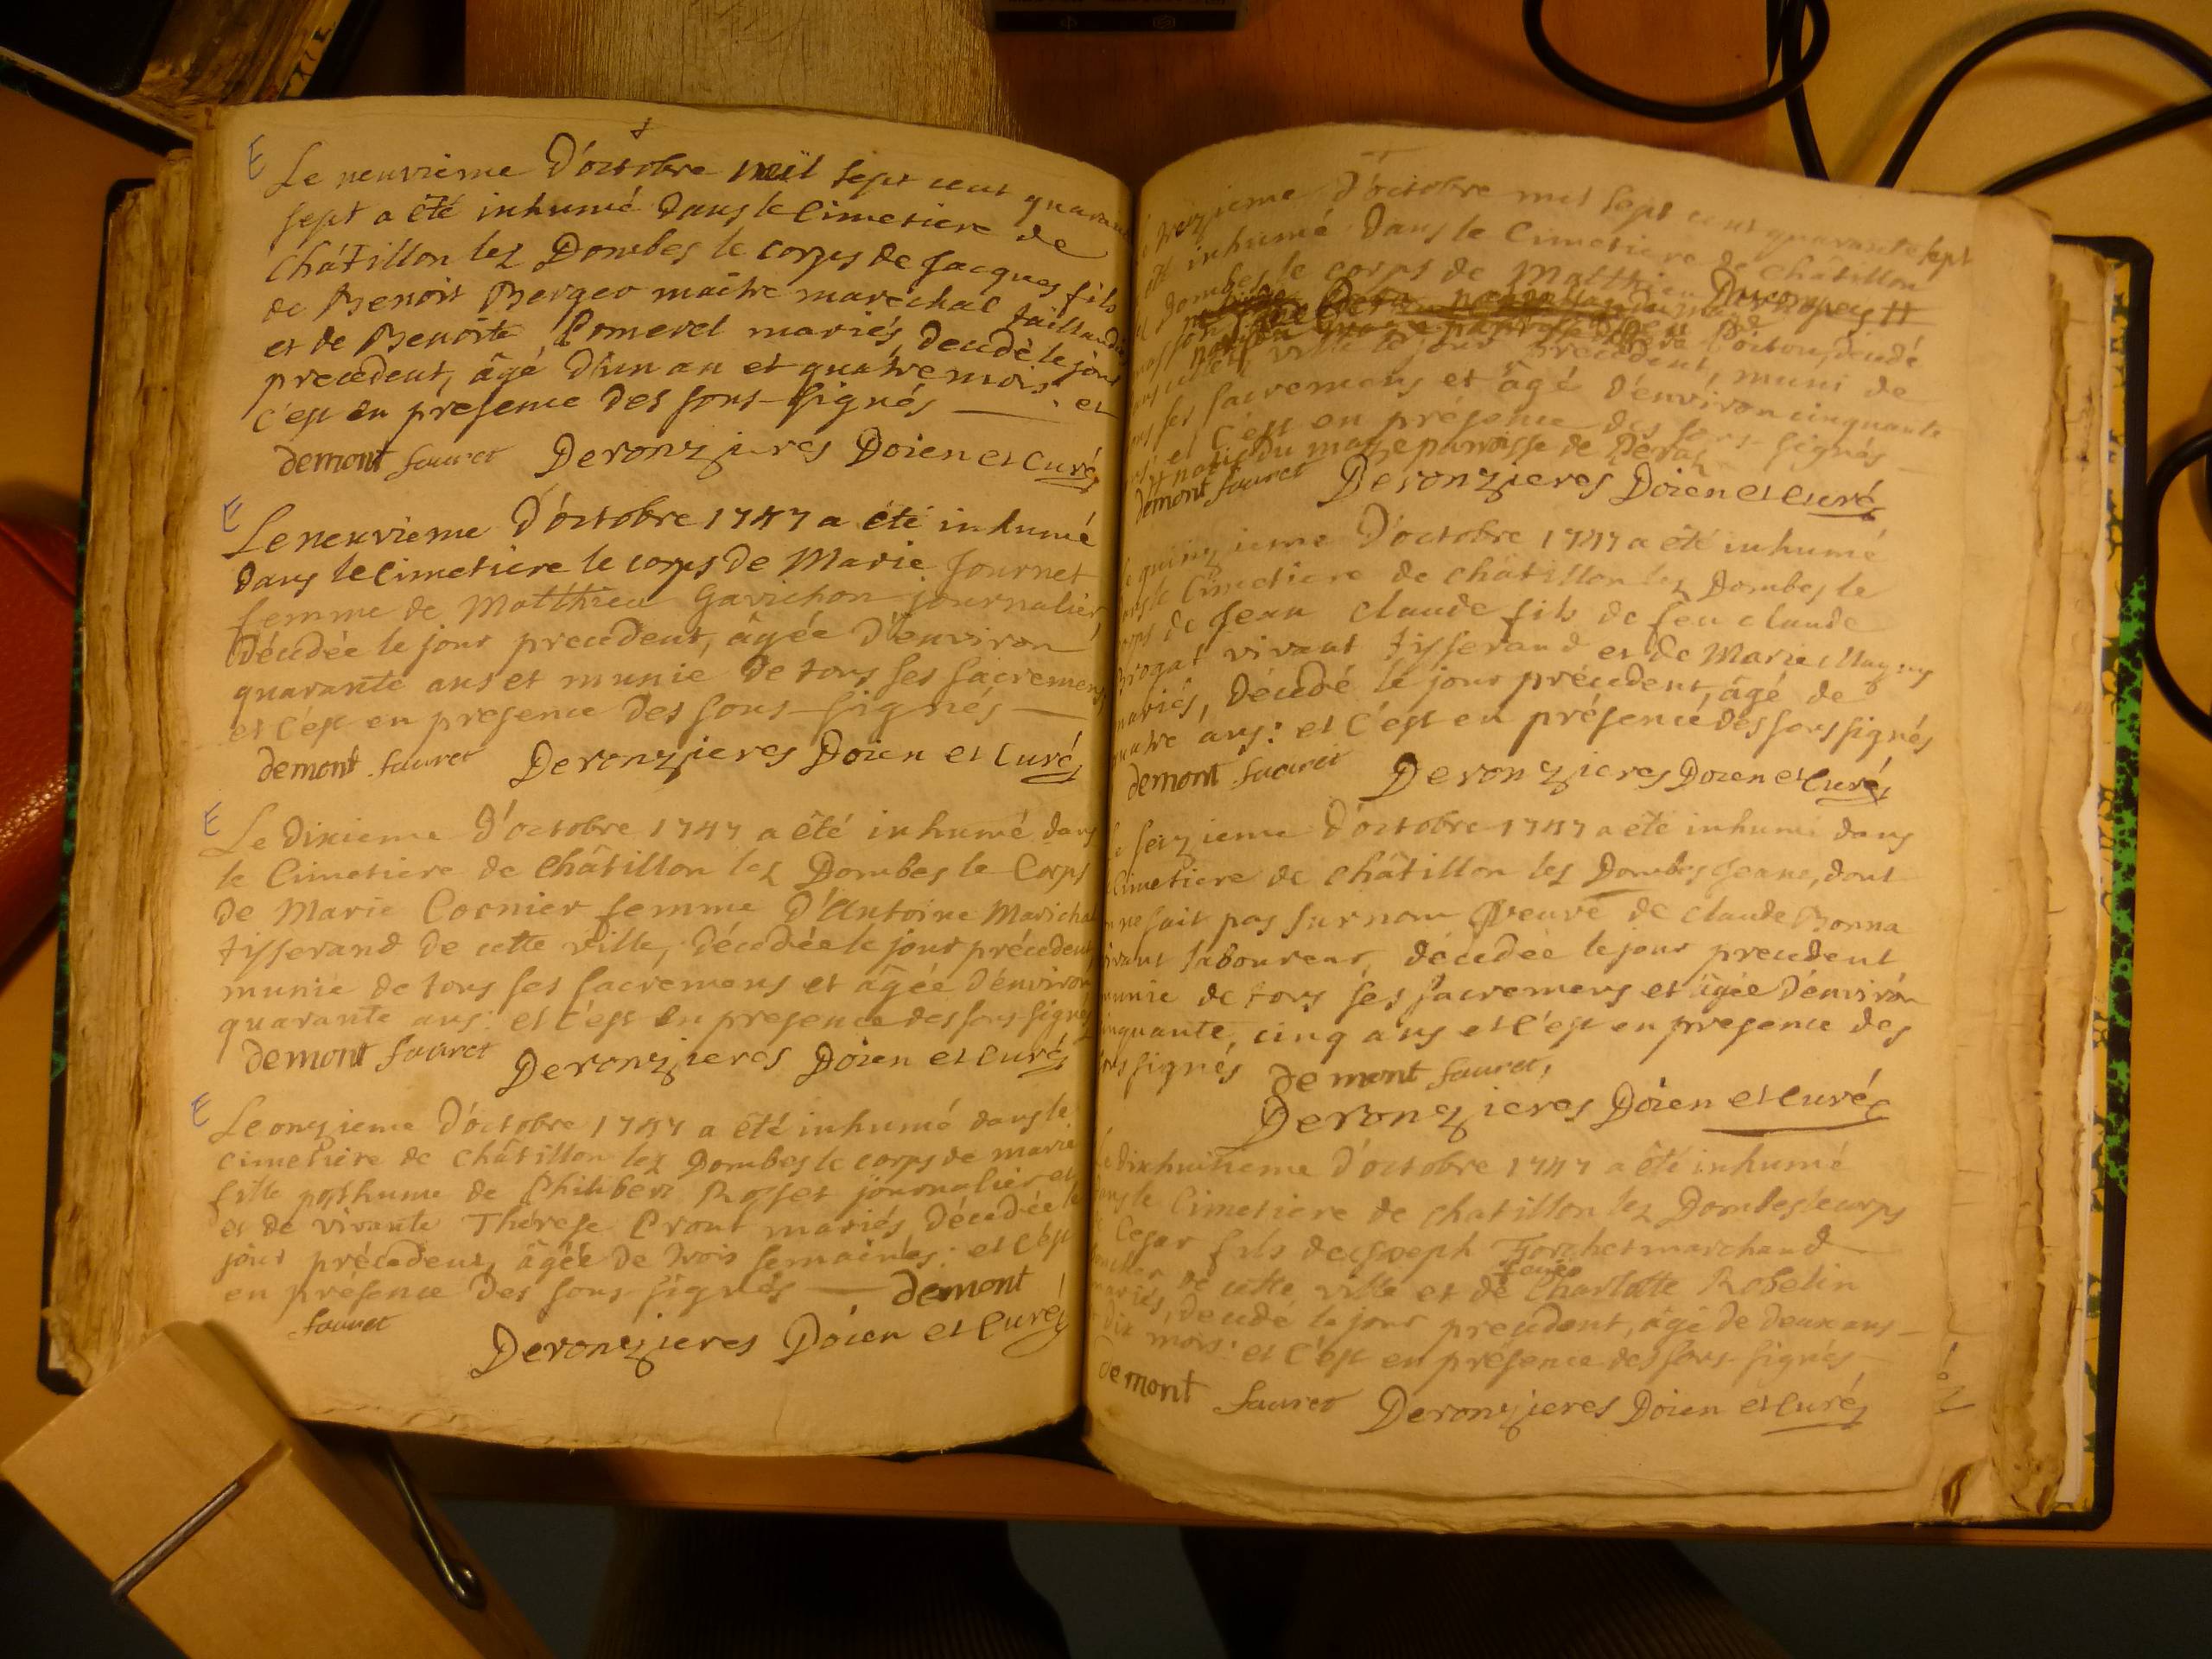 E
Le neuvieme D'octobre mil sept cent quarante
sept a été inhumé Dans le Cimetiere de
Châtillon lez Dombes le corps de Jacques fils
de Benoit Berger maitre marechal taillandier
et de Benoite Pomerel mariés, decedé le jour
precedent, âgé D'un an et quatre mois: et
c'est en presence Des sous-signés
demont fauret Deronzieres Doien et Curé
E
Le neuvieme D'octobre 1747 a été inhumé
Dans le Cimetiere le corps de Marie Journet
femme de Matthieu Gavichon journalier,
Décédée le jour precedent, âgée D'environ
quarante ans et munie De tous ses sacremens,
et c'est en presence Des sous-signés
demont fauret Deronzieres Doien et Curé
E
Le Dixieme D'octobre 1747 a été inhumé dans
le Cimetiere de Châtillon lez Dombes le Corps
de Marie Cornier femme D'Antoine Marichal
tisserand de cette ville, décédée le jour précedent,
munie de tous ses sacremens et âgée D'environ
quarante ans: et c'est en presence des sous-signés
demont fauret Deronzieres Doien et Curé
E
Le onzieme D'octobre 1747 a été inhumé dans le
cimetiere de Châtillon lez Dombes le corps de marie
fille posthume de Philibert Rosset journalier
et de vivante Thérese Pront mariés, Décédée le
jour précedent, âgée de trois semaines: et c'est
en présence Des sous-signés demont
fauret
Deronzieres Doien et Curé
treizieme D'octobre mil sept cent quarante sept
été inhumé Dans le Cimetiere de Châtillon
Dombes le corps de Matthieu
Poitou, decedé
ville le jour precedent, muni de
ses sacremens et âgé D'environ cinquante
et c'est en présence des sous-signés
natif du paroisse de
demont fauret Deronzieres Doien et Curé
quinzieme D'octobre 1747 a été inhumé
dans le Cimetiere de Châtillon lez Dombes le
corps de Jean Claude fils de feu Claude
Brogat vivant tisserand et de Marie Magny
mariés, Décédé le jour précedent, âgé de
quatre ans: et c'est en présence des sous signés
demont fauret Deronzieres Doien et Curé
Le seizieme D'octobre 1747 a été inhumé dans
Cimetiere de Châtillon lez Dombes Jeane, dont
on ne sait pas surnom veuve de Claude Bonna
vivant laboureur, décédée le jour precedent
munie de tous ses sacremens et âgée D'environ
cinquante, cinq ans et c'est en presence des
sous signés demont fauret,
Deronzieres Doien et Curé
Le dixhuitieme D'octobre 1747 a été inhumé
dans le Cimetiere de Chatillon lez Dombes le corps
Cesar fils de Joseph marchand
de cette ville et de Charlotte Robelin
mariés, decedé le jour precedent, âgé de deux ans
dix mois: et c'est en présence des sous-signés
demont fauret Deronzieres Doien et Curé